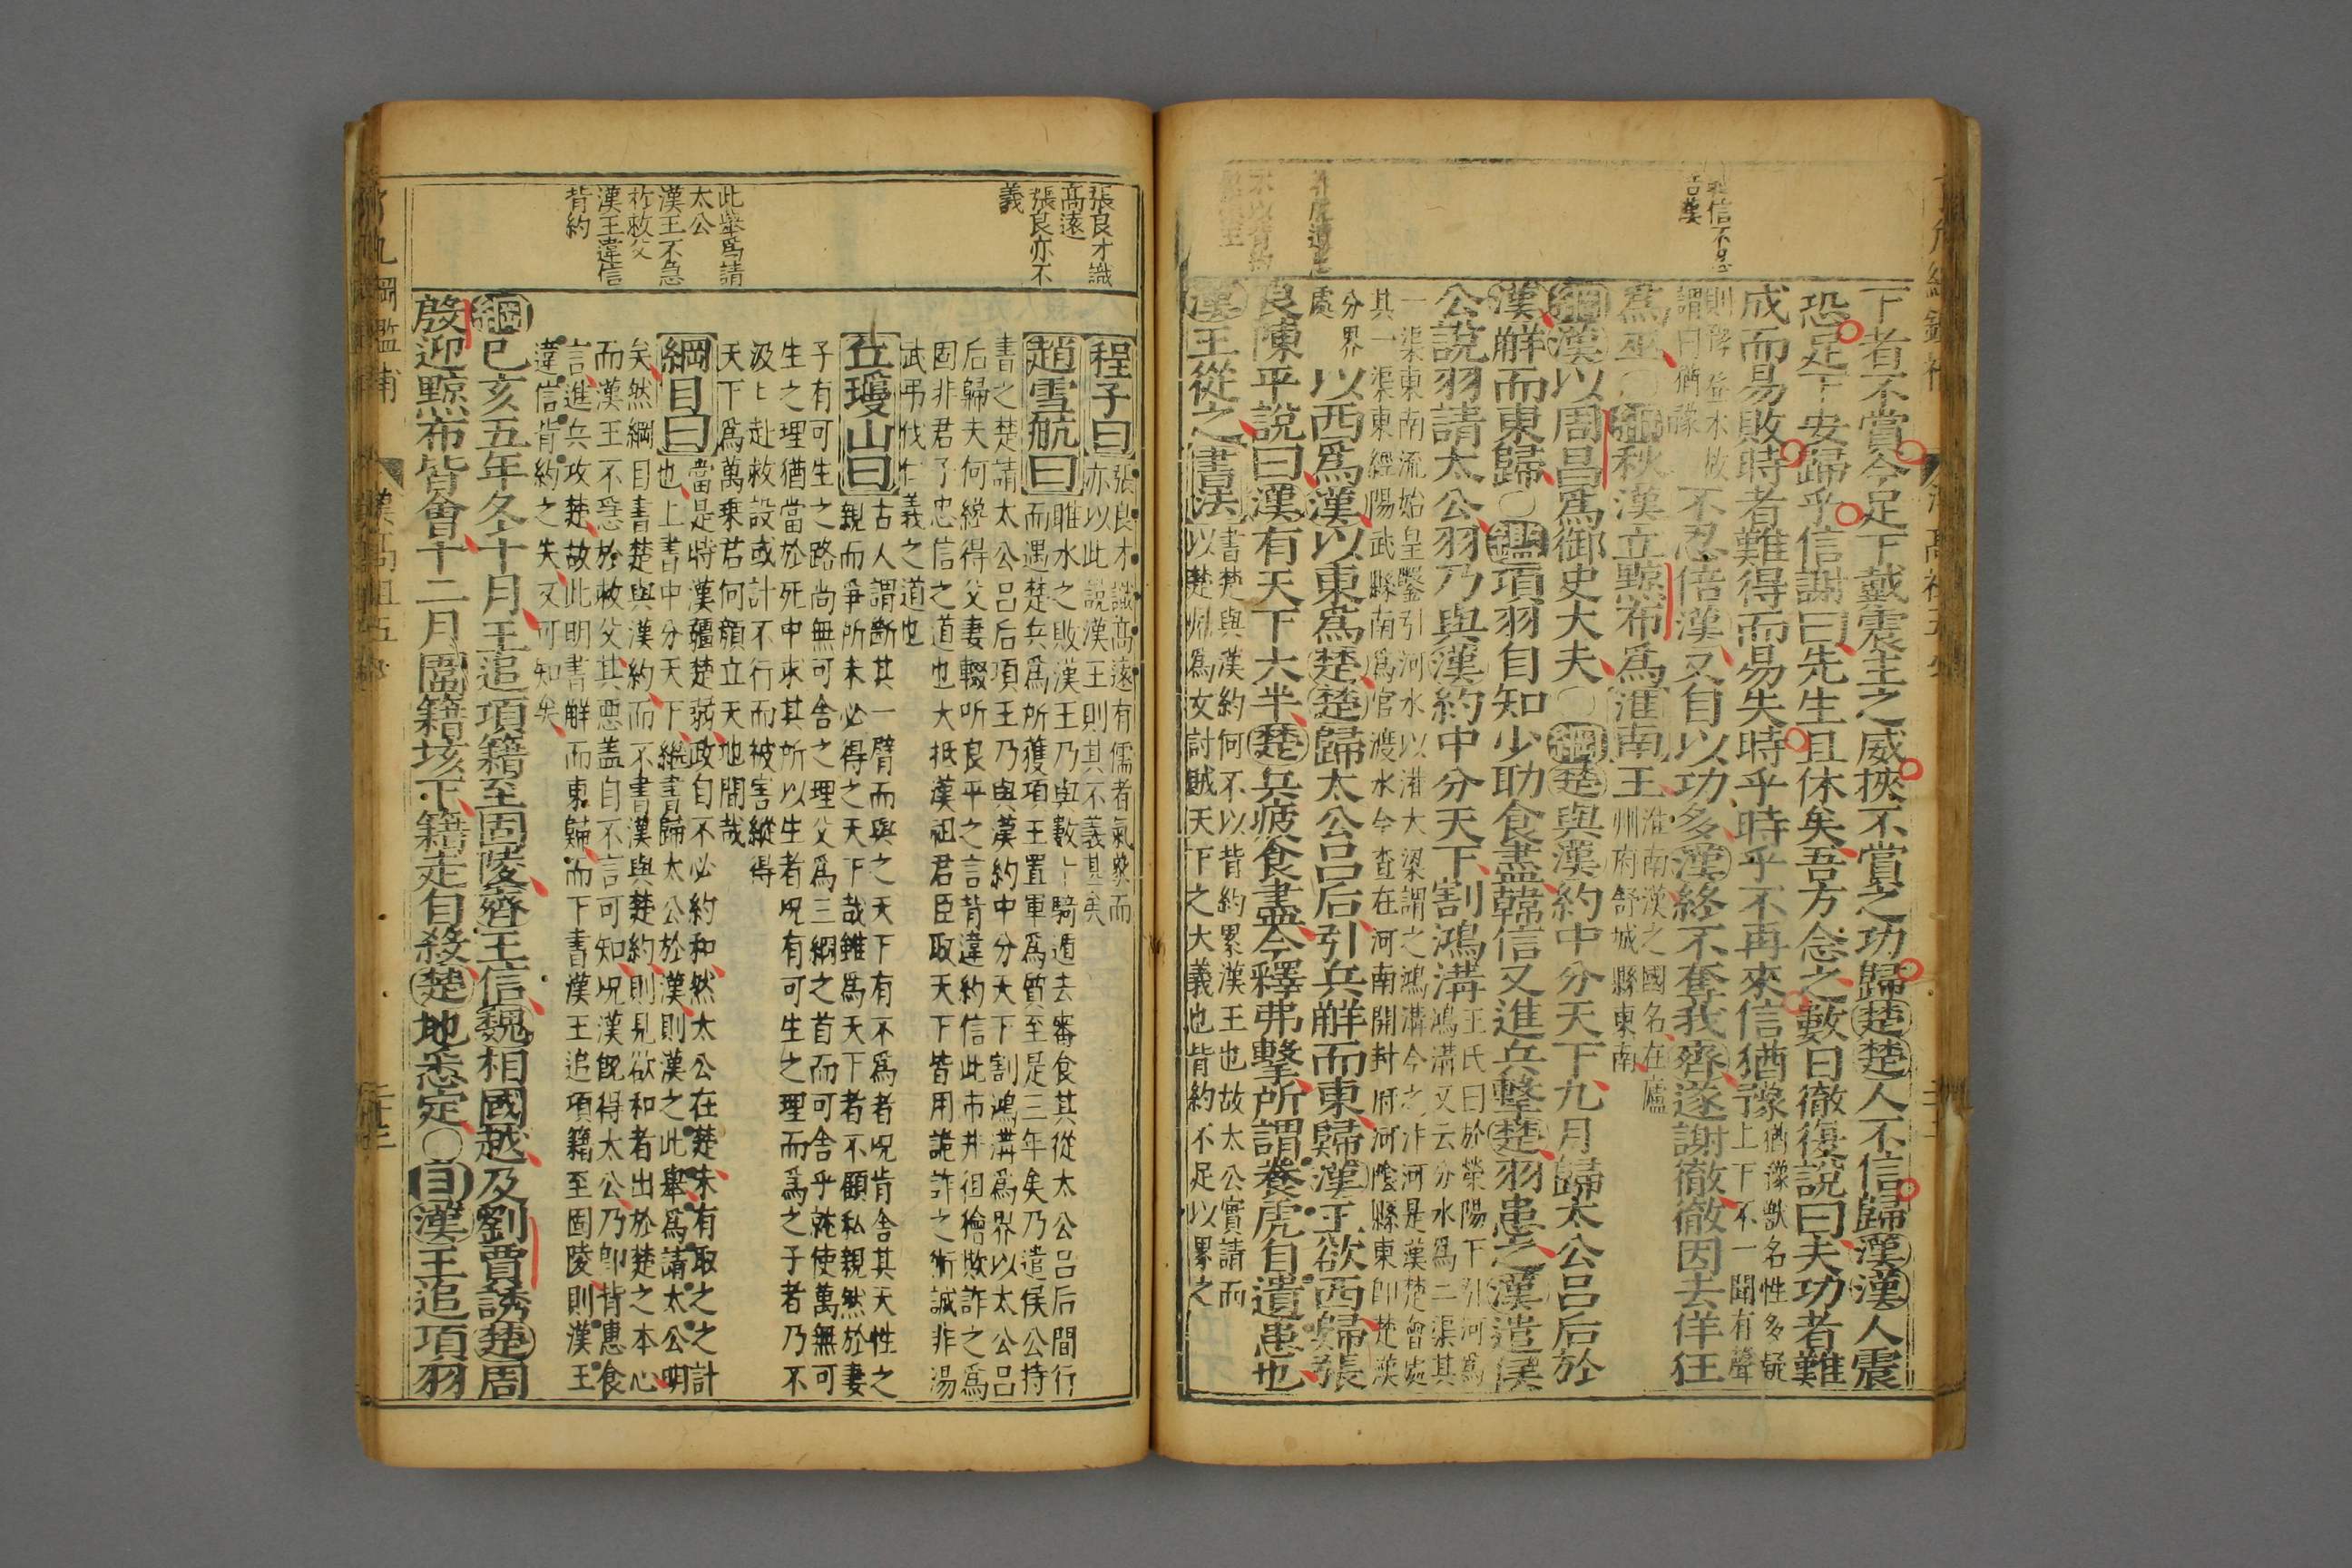 韓信不忍
倍漢
養虎遺患
不以背約
累漢王
下者不賞今足下戴震主之威挾不賞之功歸楚楚人不信歸漢漢人震
恐足下安歸乎信謝曰先生且休矣吾方念之數日徹復說曰夫功者難
成而易敗時者難得而易失時乎時乎不再來信猶豫猶豫獸名性多疑
上下不一聞有聲
則豫登木故
謂曰猶豫
不忍倍漢又自以功多漢終不奪我齊遂謝徹徹因去佯狂
為巫○綱秋漢立黥布為淮南王淮南漢之國名在廬
州府舒城縣東南
綱漢以周昌為御史大夫○綱楚與漢約中分天下九月歸太公呂后於
漢解而東歸○鑑項羽自知少助食盡韓信又進兵擊楚羽患之漢遣侯
公說羽請太公羽乃與漢約中分天下割鴻溝王氏曰於滎陽下引河為
鴻溝又云分水為二渠其
一渠東南流始皇鑿引河水以灌大梁謂之鴻溝今之汴河是漢楚會處
其一渠東經陽武縣南為官渡水今查在河南開封府河陰縣東即楚漢
分界
處
以西為漢以東為楚楚歸太公呂后引兵解而東歸漢王欲西歸張
良陳平說曰漢有天下太半楚兵疲食盡今釋弗擊所謂養虎自遺患也
漢王從之書法書楚與漢約何不以背約累漢王也故太公實請而
以楚為汝討賊天下之大義也背約不足以累之
張良才識
高遠
張良亦不
義
此舉為請
太公
漢王不急
於救父
漢王違信
背約
程子曰張良才識高遠有儒者氣象而
亦以此說漢王則其不義甚矣
趙雪航曰睢水之敗漢王乃與數十騎遁去審食其從太公呂后間行
而遇楚兵為所獲項王置軍為質至是三年矣乃遣侯公持
書之楚請太公呂后項王乃與漢約中分天下割鴻溝為界以太公呂
后歸夫何纔得父妻輟听良平之言背違約信此市井徂獪欺詐之為
固非君子忠信之道也大抵漢祖君臣取天下皆用詭詐之術誠非湯
武弔伐仁義之道也
丘瓊山曰古人謂斷其一臂而與之天下有不為者况肯舍其天性之
親而爭所未必得之天下哉雖為天下者不顧私親然於妻
子有可生之路尚無可舍之理父為三綱之首而可舍乎縱使萬無可
生之理猶當於死中求其所以生者况有可生之理而為之子者乃不
汲匕赴救設或計不行而被害縱得
天下為萬乘君何顏立天地間哉
綱目曰當是時漢彊楚弱政自不必約和然太公在楚未有取之之計
也上書中分天下繼書歸太公於漢則漢之此舉為請太公明
矣然綱目書楚與漢約而不書漢與楚約則見欲和者出於楚之本心
而漢王不急於救父其惡蓋自不言可知况漢既得太公乃即背惠食
言進兵攻楚故此明書解而東歸而下書漢王追項籍至固陵則漢王
違信背約之失又可知矣
綱己亥五年冬十月王追項籍至固陵齊王信魏相國越及劉賈誘楚周
殷迎黥布皆會十二月圍籍垓下籍走自殺楚地悉定○目漢王追項羽
綱鑑補
漢高祖五年
二十三